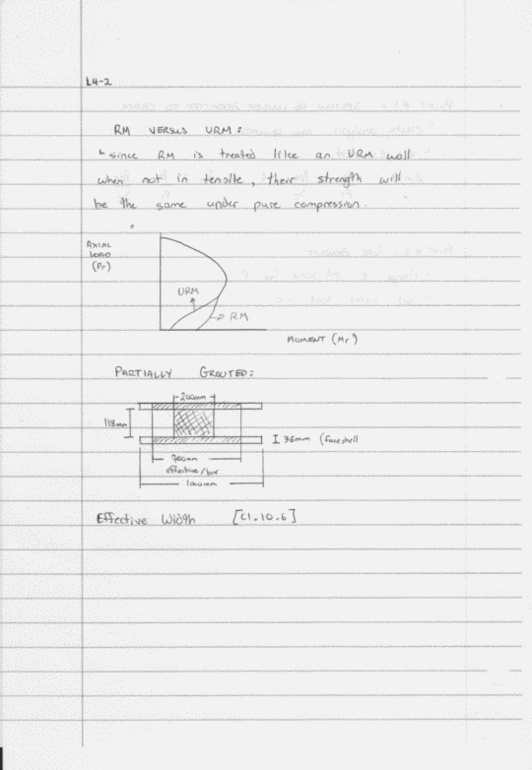 L4-2
RM VERSUS URM:
since RM is treated like an URM wall
when not in tensile, their strength will
be the same under pure compression.
AXIAL
LOAD
(Pr)
URM
RM
MOMENT (Mr)
PARTIALLY GROUTED:
200mm
118mm
36mm (faceshell
effective/bar
1000mm
Effective Width [Cl.10.6]